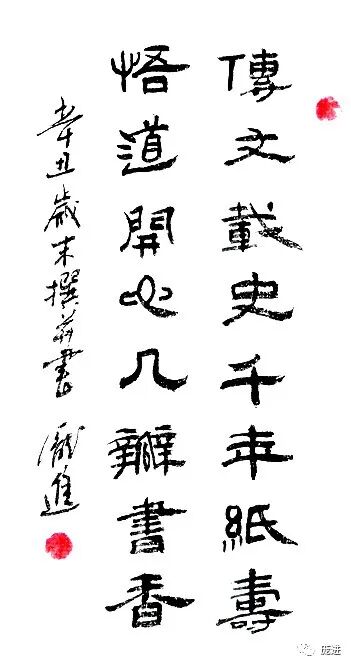 傳文載史千年紙壽
悟道開心几瓣書香
辛丑歲末撰并書 龐進
庞进